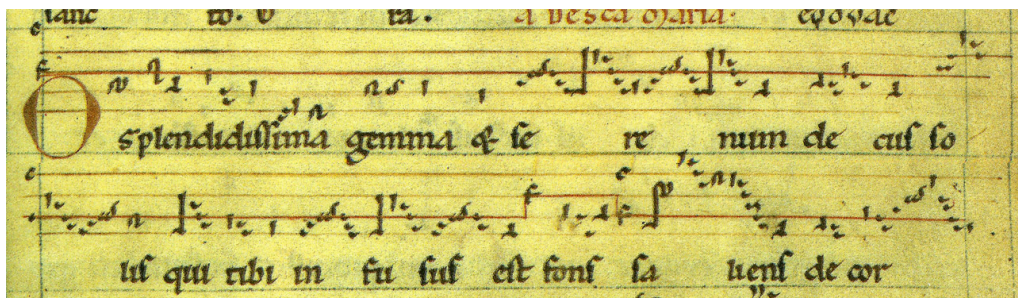 A vesca maria. evovae
O splendidissima gemma & se re num de cus so
lis qui tibi in fu sus est fons sa liens de cor